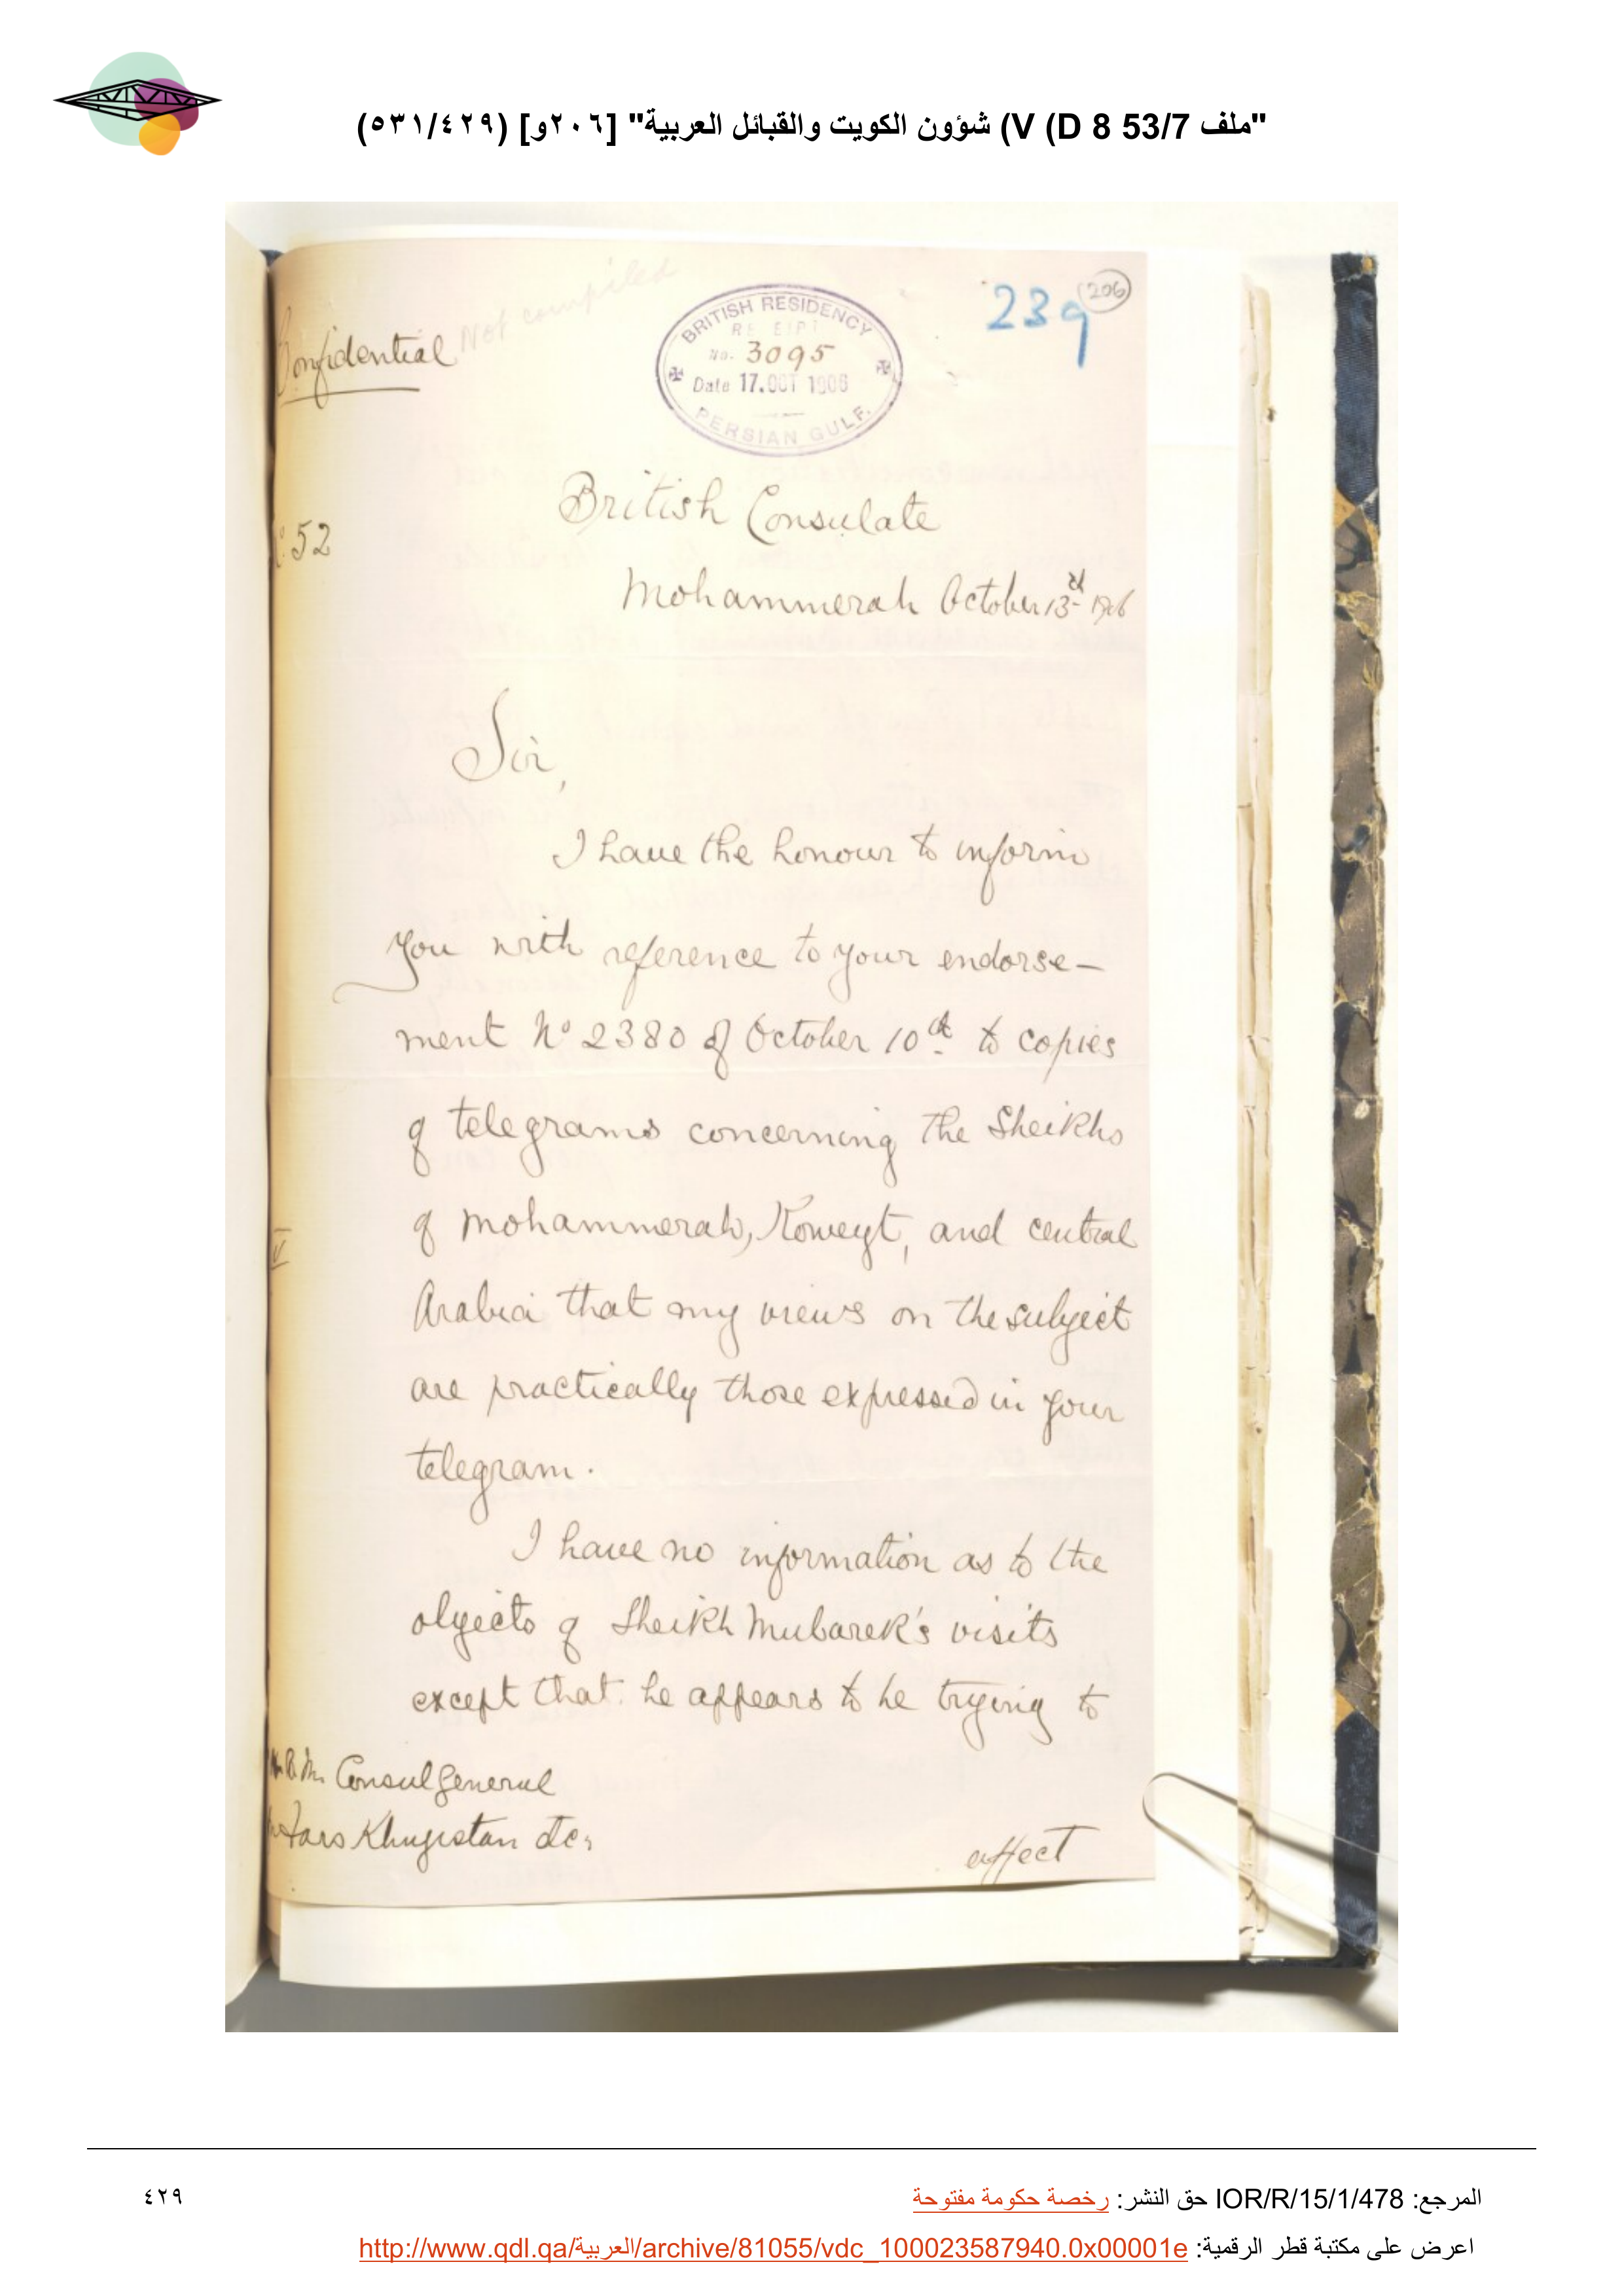 "ملف 53/7 V (D 8) شؤون الكويت والقبائل العربية" [٢٠٦و] (٥٣١/٤٢٩)
Not compiled
Confidential
BRITISH RESIDENCY
RE EIPT
No. 3095
Date 17.OCT 1906
PERSIAN GULF.
239
206
British Consulate
No. 52
Mohammerah October 13th 1906
Sir,
I have the honour to inform
you with reference to your endorse-
ment No 2380 of October 10th to copies
of telegrams concerning the Sheikhs
of Mohammerah, Koweyt, and central
Arabia that my views on the subject
are practically those expressed in your
telegram.
I have no information as to the
objects of Sheikh Mubarek's visits
except that he appears to be trying to
H.B.M. Consul General
Fars Khuzistan etc,
effect
المرجع: IOR/R/15/1/478 حق النشر: رخصة حكومة مفتوحة
٤٢٩
اعرض على مكتبة قطر الرقمية: http://www.qdl.qa/العربية/archive/81055/vdc_100023587940.0x00001e